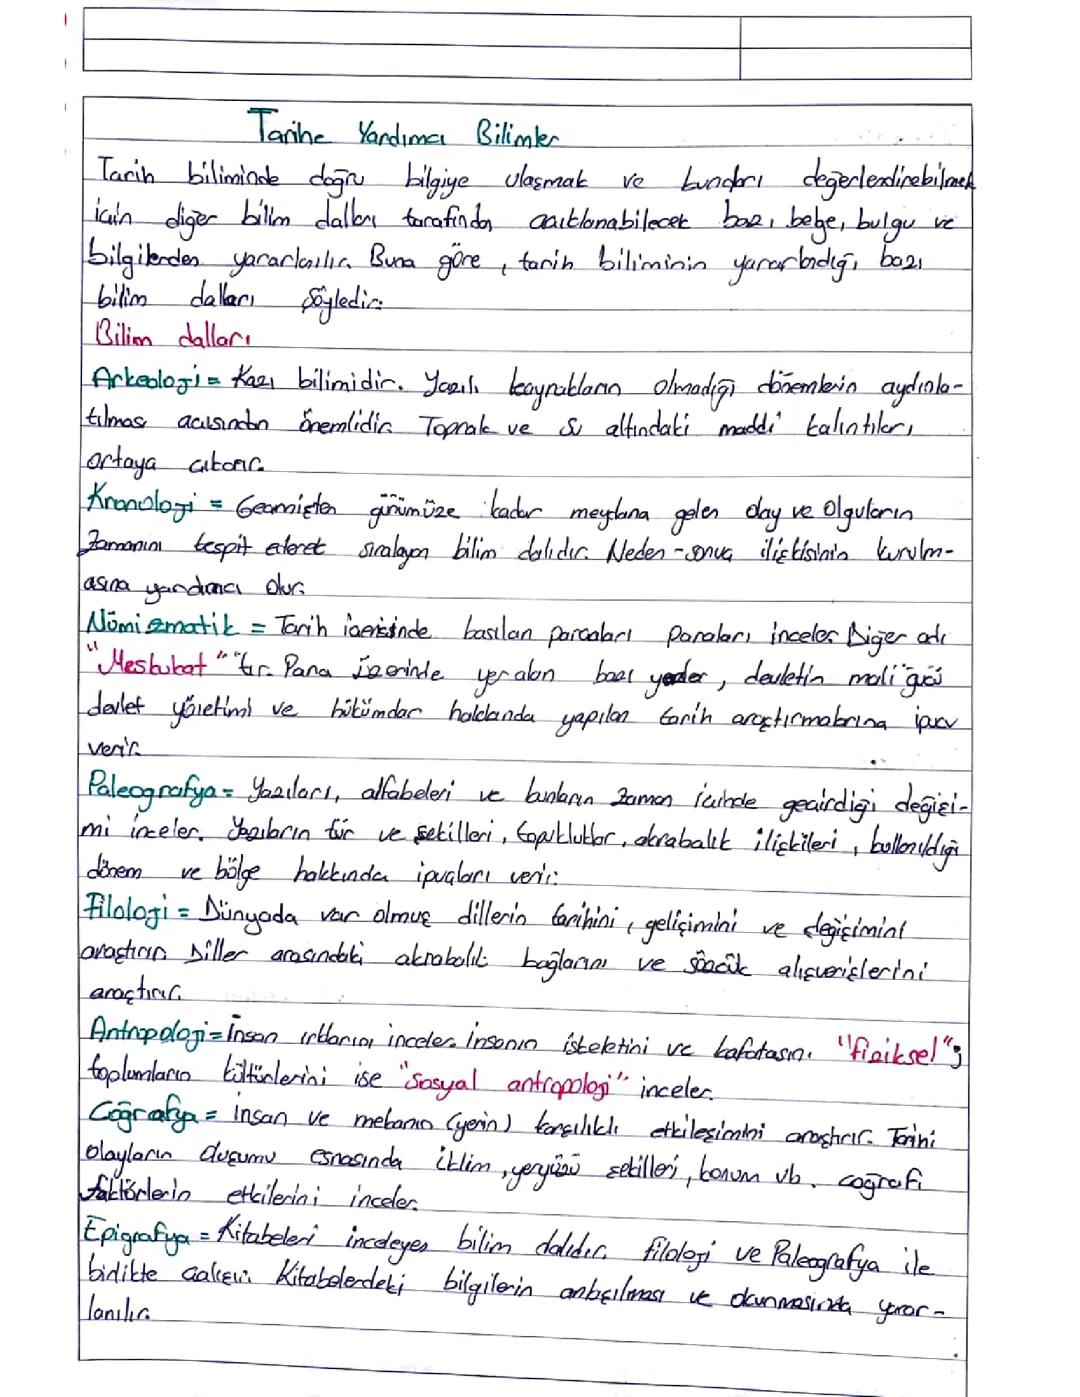 Tarihe Yardımcı Bilimler
Tarih biliminde doğru bilgiye ulaşmak ve bunları değerlendirebilmek
için diğer bilim dalları tarafından açıklanabilecek bazı belge, bulgu ve
bilgilerden yararlanılır. Buna göre, tarih biliminin yararlandığı bazı
bilim dalları şöyledir:
Bilim dalları
Arkeoloji = Kazı bilimidir. Yazılı kaynakların olmadığı dönemlerin aydınla-
tılması açısından önemlidir. Toprak ve su altındaki maddi kalıntıları
ortaya çıkarır.
Kronoloji = Geçmişten günümüze kadar meydana gelen olay ve olguların
zamanını tespit ederek sıralayan bilim dalıdır. Neden-sonuç ilişkisinin kurulm-
asına yardımcı olur.
Nümizmatik = Tarih içerisinde basılan parcaları paraları inceler. Diğer adı
"Meskukat" tır. Para üzerinde yer alan bazı yerler, devletin mali gücü
devlet yönetimi ve hükümdar hakkında yapılan tarih araştırmalarına ipucu
verir.
Paleografya = Yazıları, alfabeleri ve bunların zaman içinde geçirdiği değişi-
mi inceler. Yazıların tür ve şekilleri, akrabalık ilişkileri, kullanıldığı
dönem ve bölge hakkında ipuçları verir.
Filoloji = Dünyada var olmuş dillerin tarihini, gelişimini ve değişimini
araştırır. Diller arasındaki akrabalık bağlarını ve sözcük alışverişlerini
araştırır.
Antropoloji = İnsan ırklarını inceler. İnsanın iskeletini ve kafatasını "fiziksel";
toplumların kültürlerini ise "sosyal antropoloji" inceler.
Coğrafya = İnsan ve mekanın (yerin) karşılıklı etkileşimini araştırır. Tarihi
olayların oluşumu esnasında iklim, yeryüzü şekilleri, konum vb. coğrafi
faktörlerin etkilerini inceler.
Epigrafya = Kitabeleri inceleyen bilim dalıdır. Filoloji ve Paleografya ile
birlikte çalışır. Kitabelerdeki bilgilerin anlaşılması ve okunmasında yarar-
lanılır.